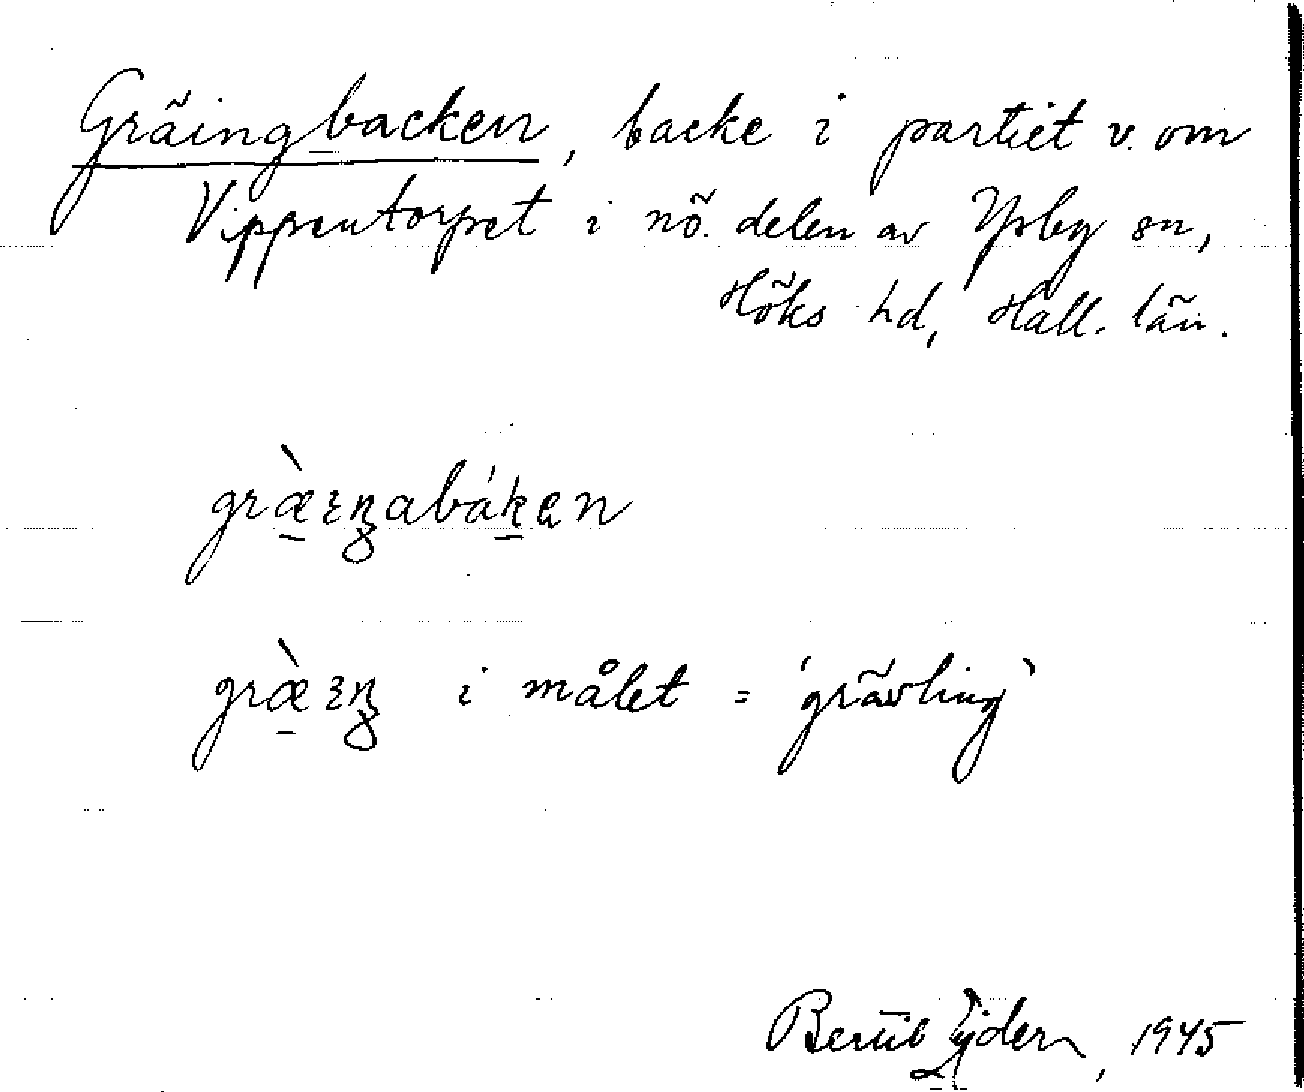 Gräingbacken, backe i partiet v. om
Vippentorpet i nö. delen av Ysby sn,
Höks hd, Hall. län.
græ̀ɛŋabákən
græ̀ɛŋ i målet = 'grävling'
Bertil Ejder, 1945